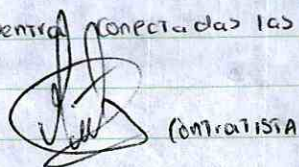 entra conectadas las
contratista